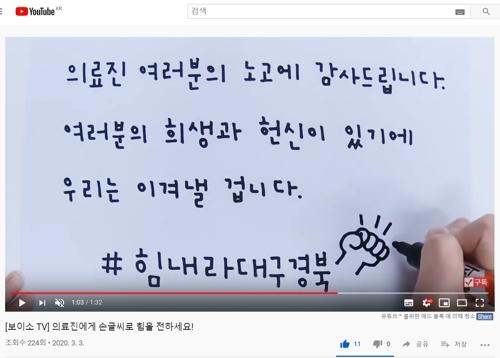 YouTube KR
검색
의료진 여러분의 노고에 감사드립니다.
여러분의 희생과 헌신이 있기에
우리는 이겨낼 겁니다.
#힘내라대구경북
구독
1:03 / 1:32
유튜브™ 를위한 애드 블록 에 의해 청소 Share
[보이소 TV] 의료진에게 손글씨로 힘을 전하세요!
조회수 224회 • 2020. 3. 3.
11 0 공유 저장